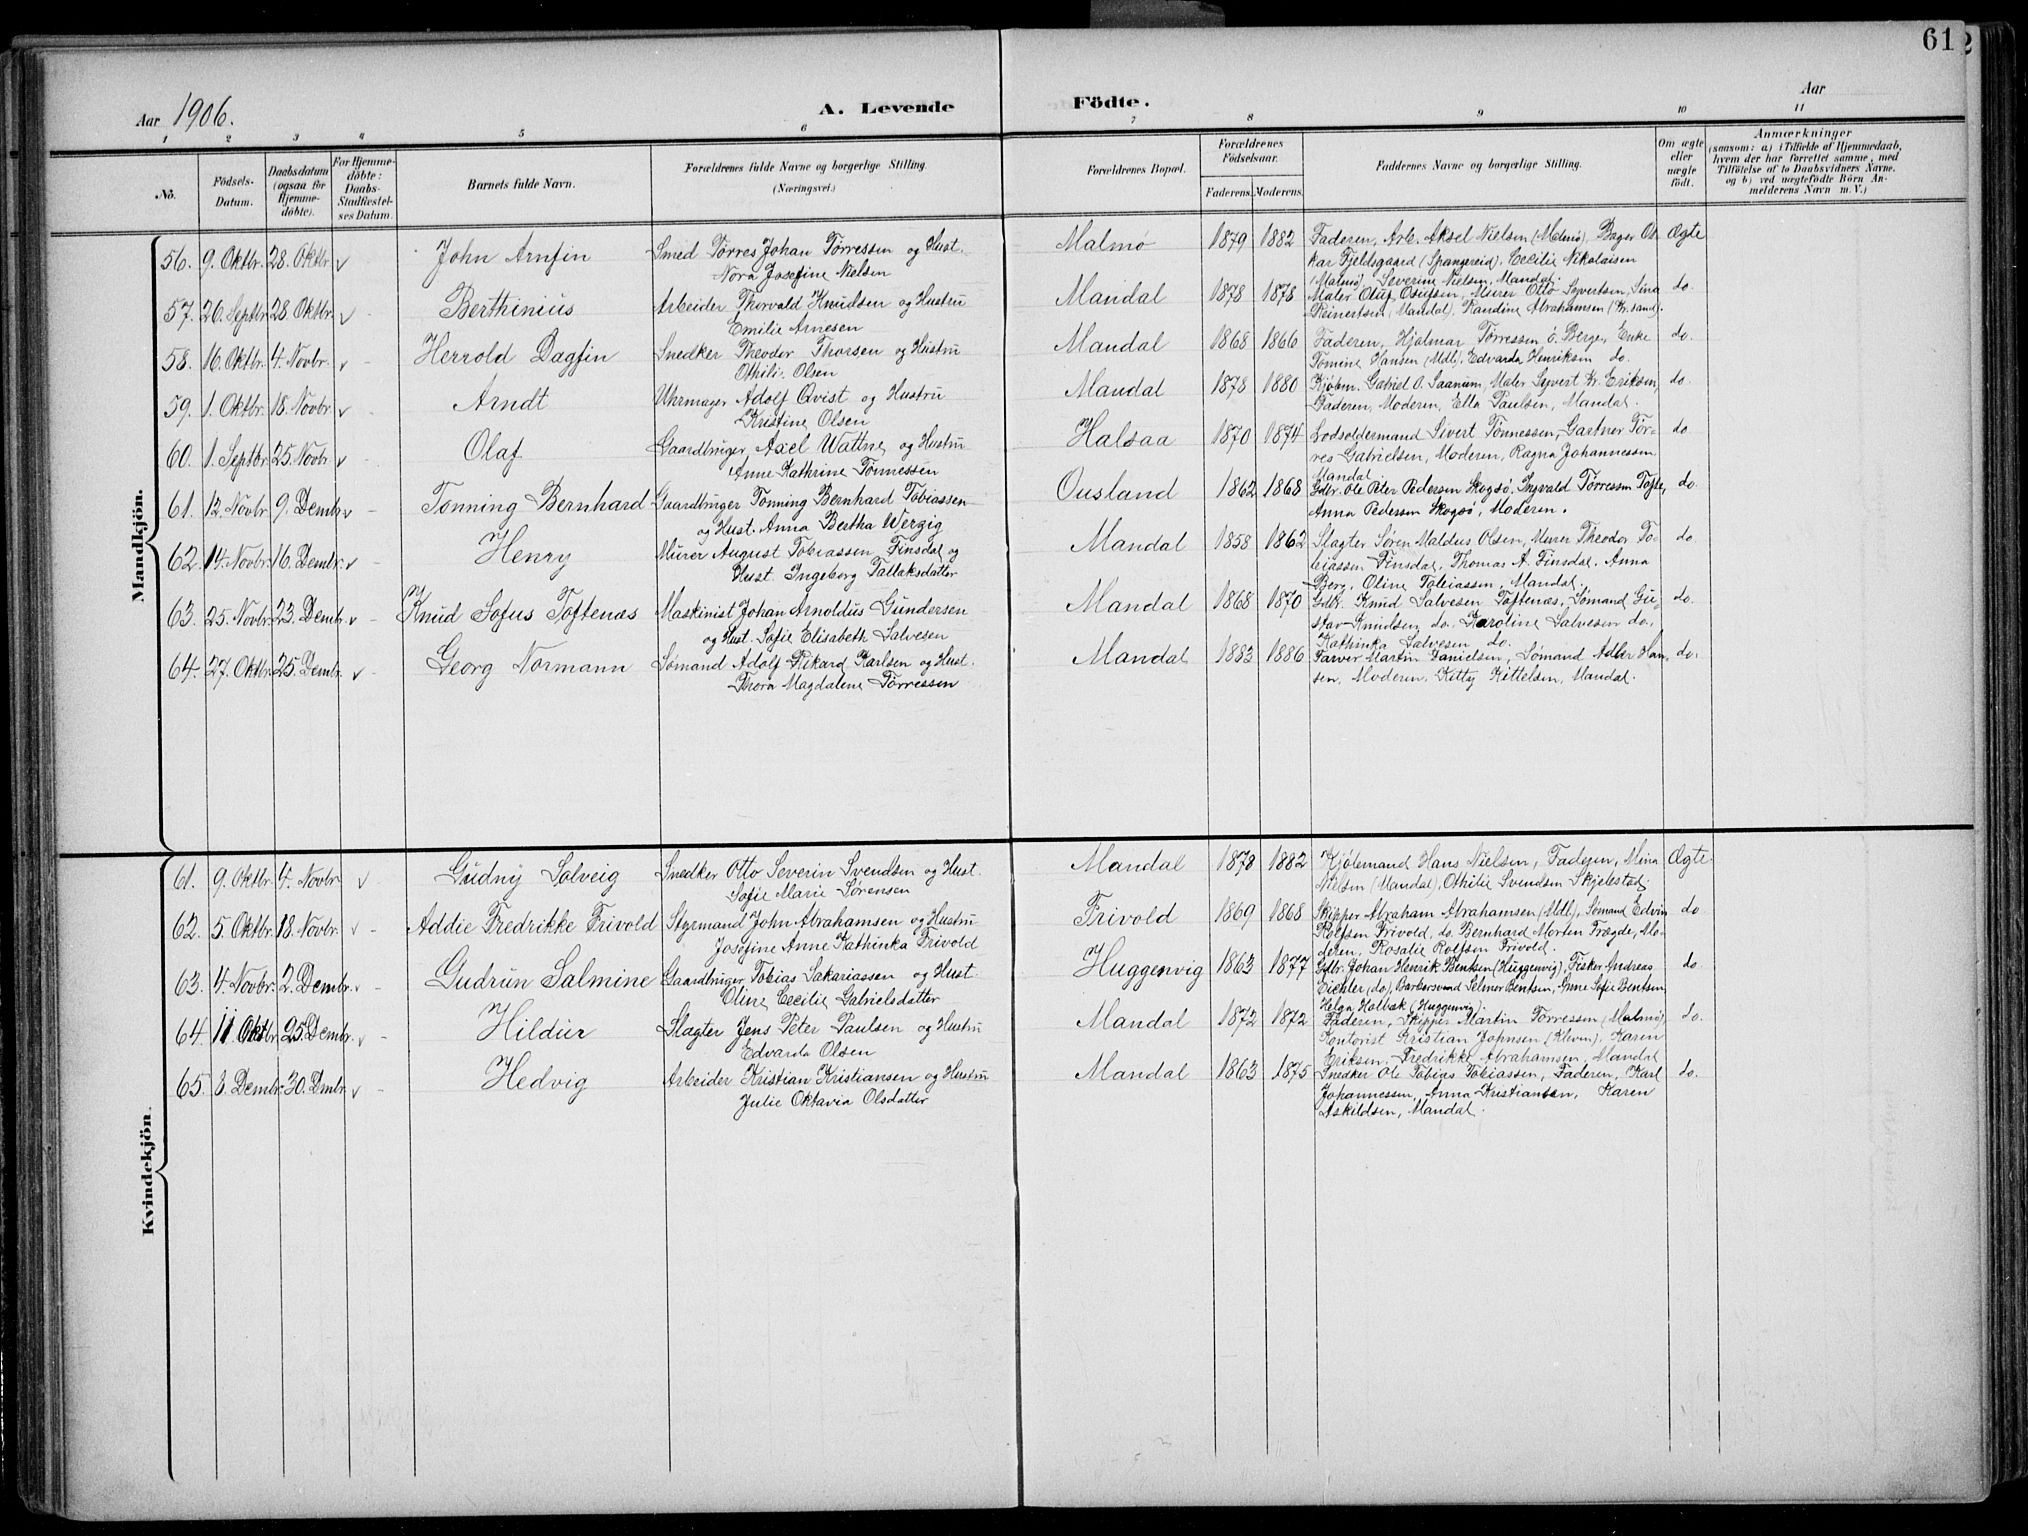 61
Aar 1906.
A. Levende
Födte.
Aar
1 2 3 4 5 6 7 8 9 10 11
No.
Födsels-
Datum.
Daabsdatum
(ogsaa for
Hjemme-
döbte).
For Hjemme-
döbte:
Daabs-
Stadfæstel-
ses Datum.
Barnets fulde Navn.
Forældrenes fulde Navne og borgerlige Stilling.
(Næringsvei.)
Forældrenes Bopæl.
Forældrenes
Födselsaar.
Faderens. Moderens.
Faddernes Navne og borgerlige Stilling.
Om ægte
eller
uægte
födt.
Anmærkninger
(saasom: a) i Tilfælde af Hjemmedaab,
hvem der har forrettet samme, med
Tilföielse af to Daabsvidners Navne,
og b) ved uægtefödte Börn An-
melderens Navn m. V.)
Mandkjön.
56. 9. Oktbr. 28. Oktbr. John Arnfin Smed Tørres Johan Tørressen og Hust. Malmø 1879 1882 Faderen, Arb. Aksel Nielsen (Malmø), Bager Os- Ægte
Nora Josefine Nielsen kar Fjeldsgaard (Spangereid), Cecilie Nikolaisen
(Malmø), Severine Nielsen, Mandal.
57. 26. Septbr. 28. Oktbr. Berthinius Arbeider Thorvald Knudsen og Hustru Mandal 1878 1878 Maler Oluf Olufsen, Murer Otto Syvertsen, Sina do.
Emilie Arnesen Reinertsen (Mandal), Randine Abrahamsen (Kr.sand).
58. 16. Oktbr. 4. Novbr. Herrold Dagfin Snedker Theodor Thorsen og Hustru Mandal 1868 1866 Faderen, Hjalmar Tørressen ö. Berge, Enke do.
Othili Olsen Tomine Hansen (Mdl), Edvarda Henriksen do.
59. 1. Oktbr. 18. Novbr. Arndt Uhrmager Adolf Qvist og Hustru Mandal 1878 1880 Kjøbm. Gabriel O. Saanum, Maler Syvert Kr. Eriksen, do.
Kristine Olsen Faderen, Moderen, Ella Paulsen, Mandal.
60. 1. Septbr. 25. Novbr. Olaf Gaardbruger Axel Wattne og Hustru Halsaa 1870 1874 Lodsoldermand Sivert Tønnessen, Gartner Tør- do.
Anne Kathrine Tønnessen res Gabrielsen, Moderen, Ragna Johannessen
Mandal
61. 12. Novbr. 9. Dembr. Tønning Bernhard Gaardbruger Tønning Bernhard Tobiassen Ousland 1862 1868 Gdbr. Ole Peter Pedersen Skogsø, Ingvald Tørressen do.
og Hust. Anna Bertha Wergig Anna Pedersen Skogsø, Moderen.
62. 14. Novbr. 16. Dembr. Henry Murer August Tobiassen Finsdal og Mandal 1858 1862 Slagter Søren Maldus Olsen, Murer Theodor To- do.
Hust. Ingeborg Tallaksdatter biassen Finsdal, Thomas A. Finsdal, Anna
Berg, Oline Tobiassen, Mandal.
63. 25. Novbr. 23. Dembr. Knud Sofus Toftenæs Maskinist Johan Arnoldus Gundersen Mandal 1868 1870 Gdbr. Knud Salvesen Toftenæs, Sømand Gu- do.
og Hust. Sofie Elisabeth Salvesen stav Knudsen do. Karoline Salvesen do.,
Kathinka Salvesen do.
64. 27. Oktbr. 25. Dembr. Georg Normann Sømand Adolf Rikard Karlsen og Hust. Mandal 1883 1886 Farver Martin Danielsen, Sømand Adler Han- do.
Thora Magdalene Tørressen sen, Moderen, Kitty Kittelsen, Mandal.
Kvindekjön.
61. 9. Oktbr. 4. Novbr. Gudny Solveig Snedker Otto Severin Svendsen og Hust. Mandal 1878 1882 Kjølemand Hans Nielsen, Faderen, Mina Ægte
Sofie Marie Sørensen Nielsen (Mandal), Othilie Svendsen Skjelstad.
62. 5. Oktbr. 18. Novbr. Addie Fredrikke Frivold Styrmand John Abrahamsen og Hustru Frivold 1869 1868 Skipper Abraham Abrahamsen (Mdl), Sømand Edvin do.
Josefine Anne Kathinka Frivold Rolfsen Frivold, do. Bernhard Morten Frægde, Mo-
deren, Rosalie Rolfsen Frivold.
63. 4. Novbr. 2. Dembr. Gudrun Salmine Gaardbruger Tobias Sakariassen og Hust. Huggenvig 1863 1877 Gdbr. Johan Henrik Bentsen (Huggenvig), Fisker Andreas do.
Oline Cecilie Gabrielsdatter Eichler (do), Barbersvend Selmer Bentsen, Anne Sofie Bentsen
Helga Holbak (Huggenvig).
64. 11 Oktbr. 25. Dembr. Hildur Slagter Jens Peter Paulsen og Hustru Mandal 1872 1872 Faderen, Skipper Martin Tørressen (Malmø), do.
Edvarda Olsen Kontorist Kristian Johnsen (Kleven), Karen
Eriksen, Fredrikke Abrahamsen, Mandal
65. 8. Dembr. 30. Dmbr. Hedvig Arbeider Kristian Kristiansen og Hustru Mandal 1863 1875 Snedker Ole Tobias Tobiassen, Faderen, Karl do.
Julie Oktavia Olsdatter Johannessen, Anna Kristiansen, Karen
Askildsen, Mandal.